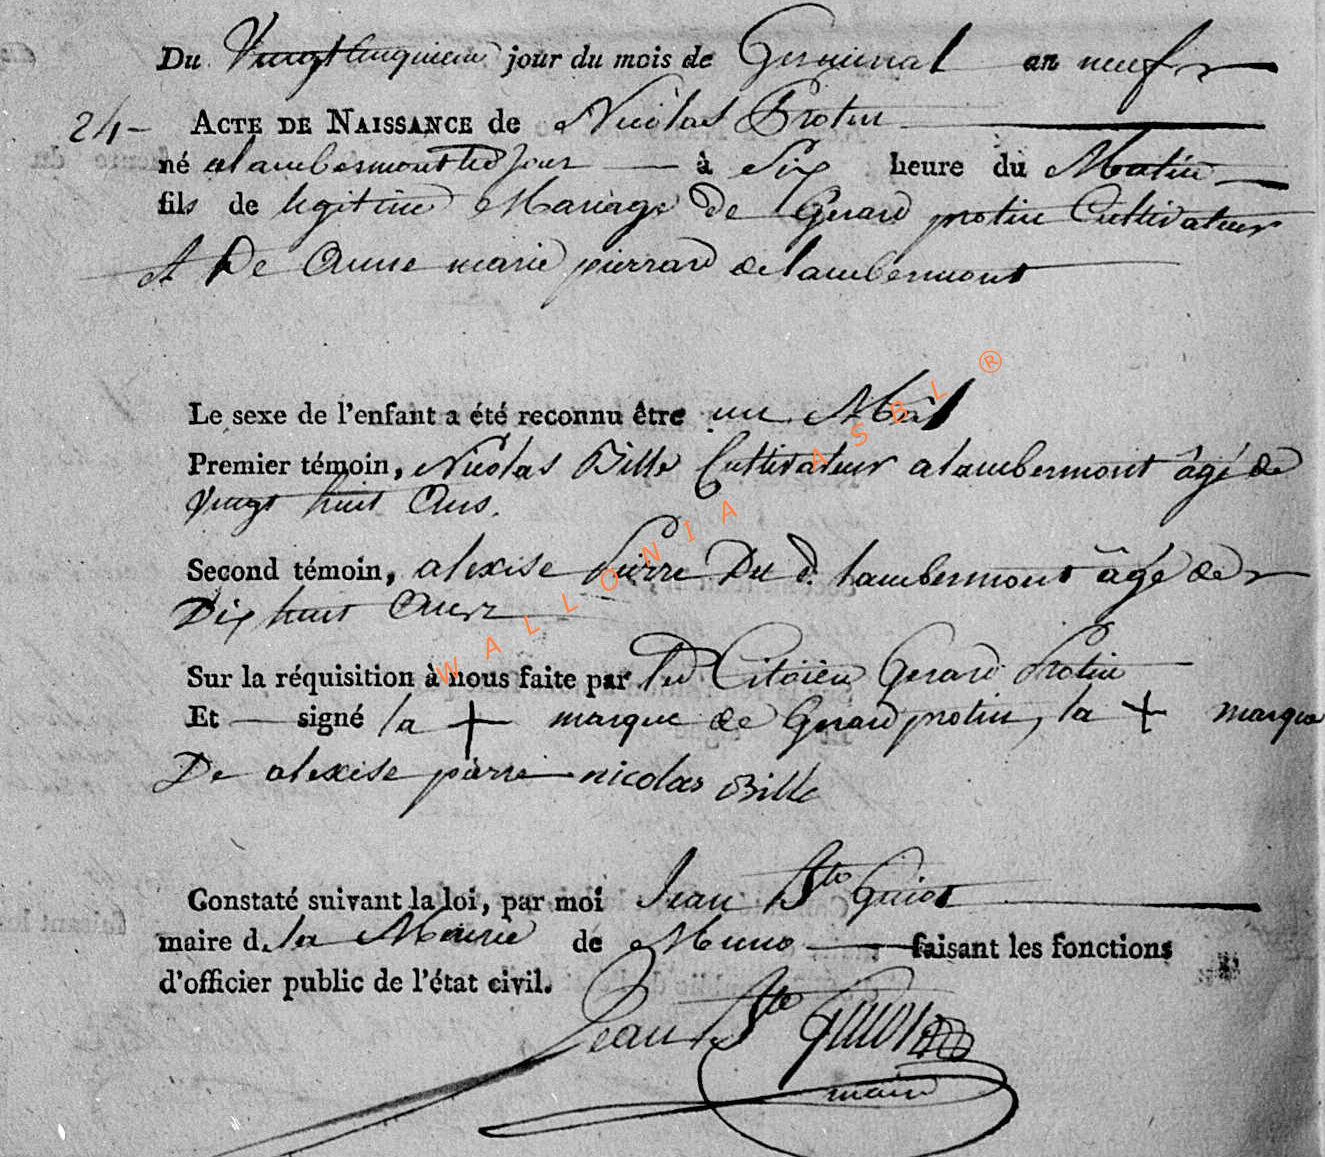 Du Vingt cinquieme jour du mois de Germinal an neuf
24 - ACTE DE NAISSANCE de Nicolas Protin
né a lambermont led jour à Six heure du Matin
fils de legitime Mariage de Gerard protin Cultivateur
et De Anne marie pierrard de lambermont
Le sexe de l'enfant a été reconnu être un Mâl
Premier témoin, Nicolas Bille Cultivateur a lambermont âgé de
vingt huit Ans.
Second témoin, alexise Pierre Du d. lambermont âgé de
Dix huit Ans
Sur la réquisition à nous faite par led Citoien Gerard Protin
Et signé la + marque de Gerard protin, la + marque
De alexise pierre nicolas Bille
Constaté suivant la loi, par moi Jean Bte Guiot
maire d. la Mairie de Muno faisant les fonctions
d'officier public de l'état civil.
Jean Bte Guiot
maire
WALLONIA ASBL ®